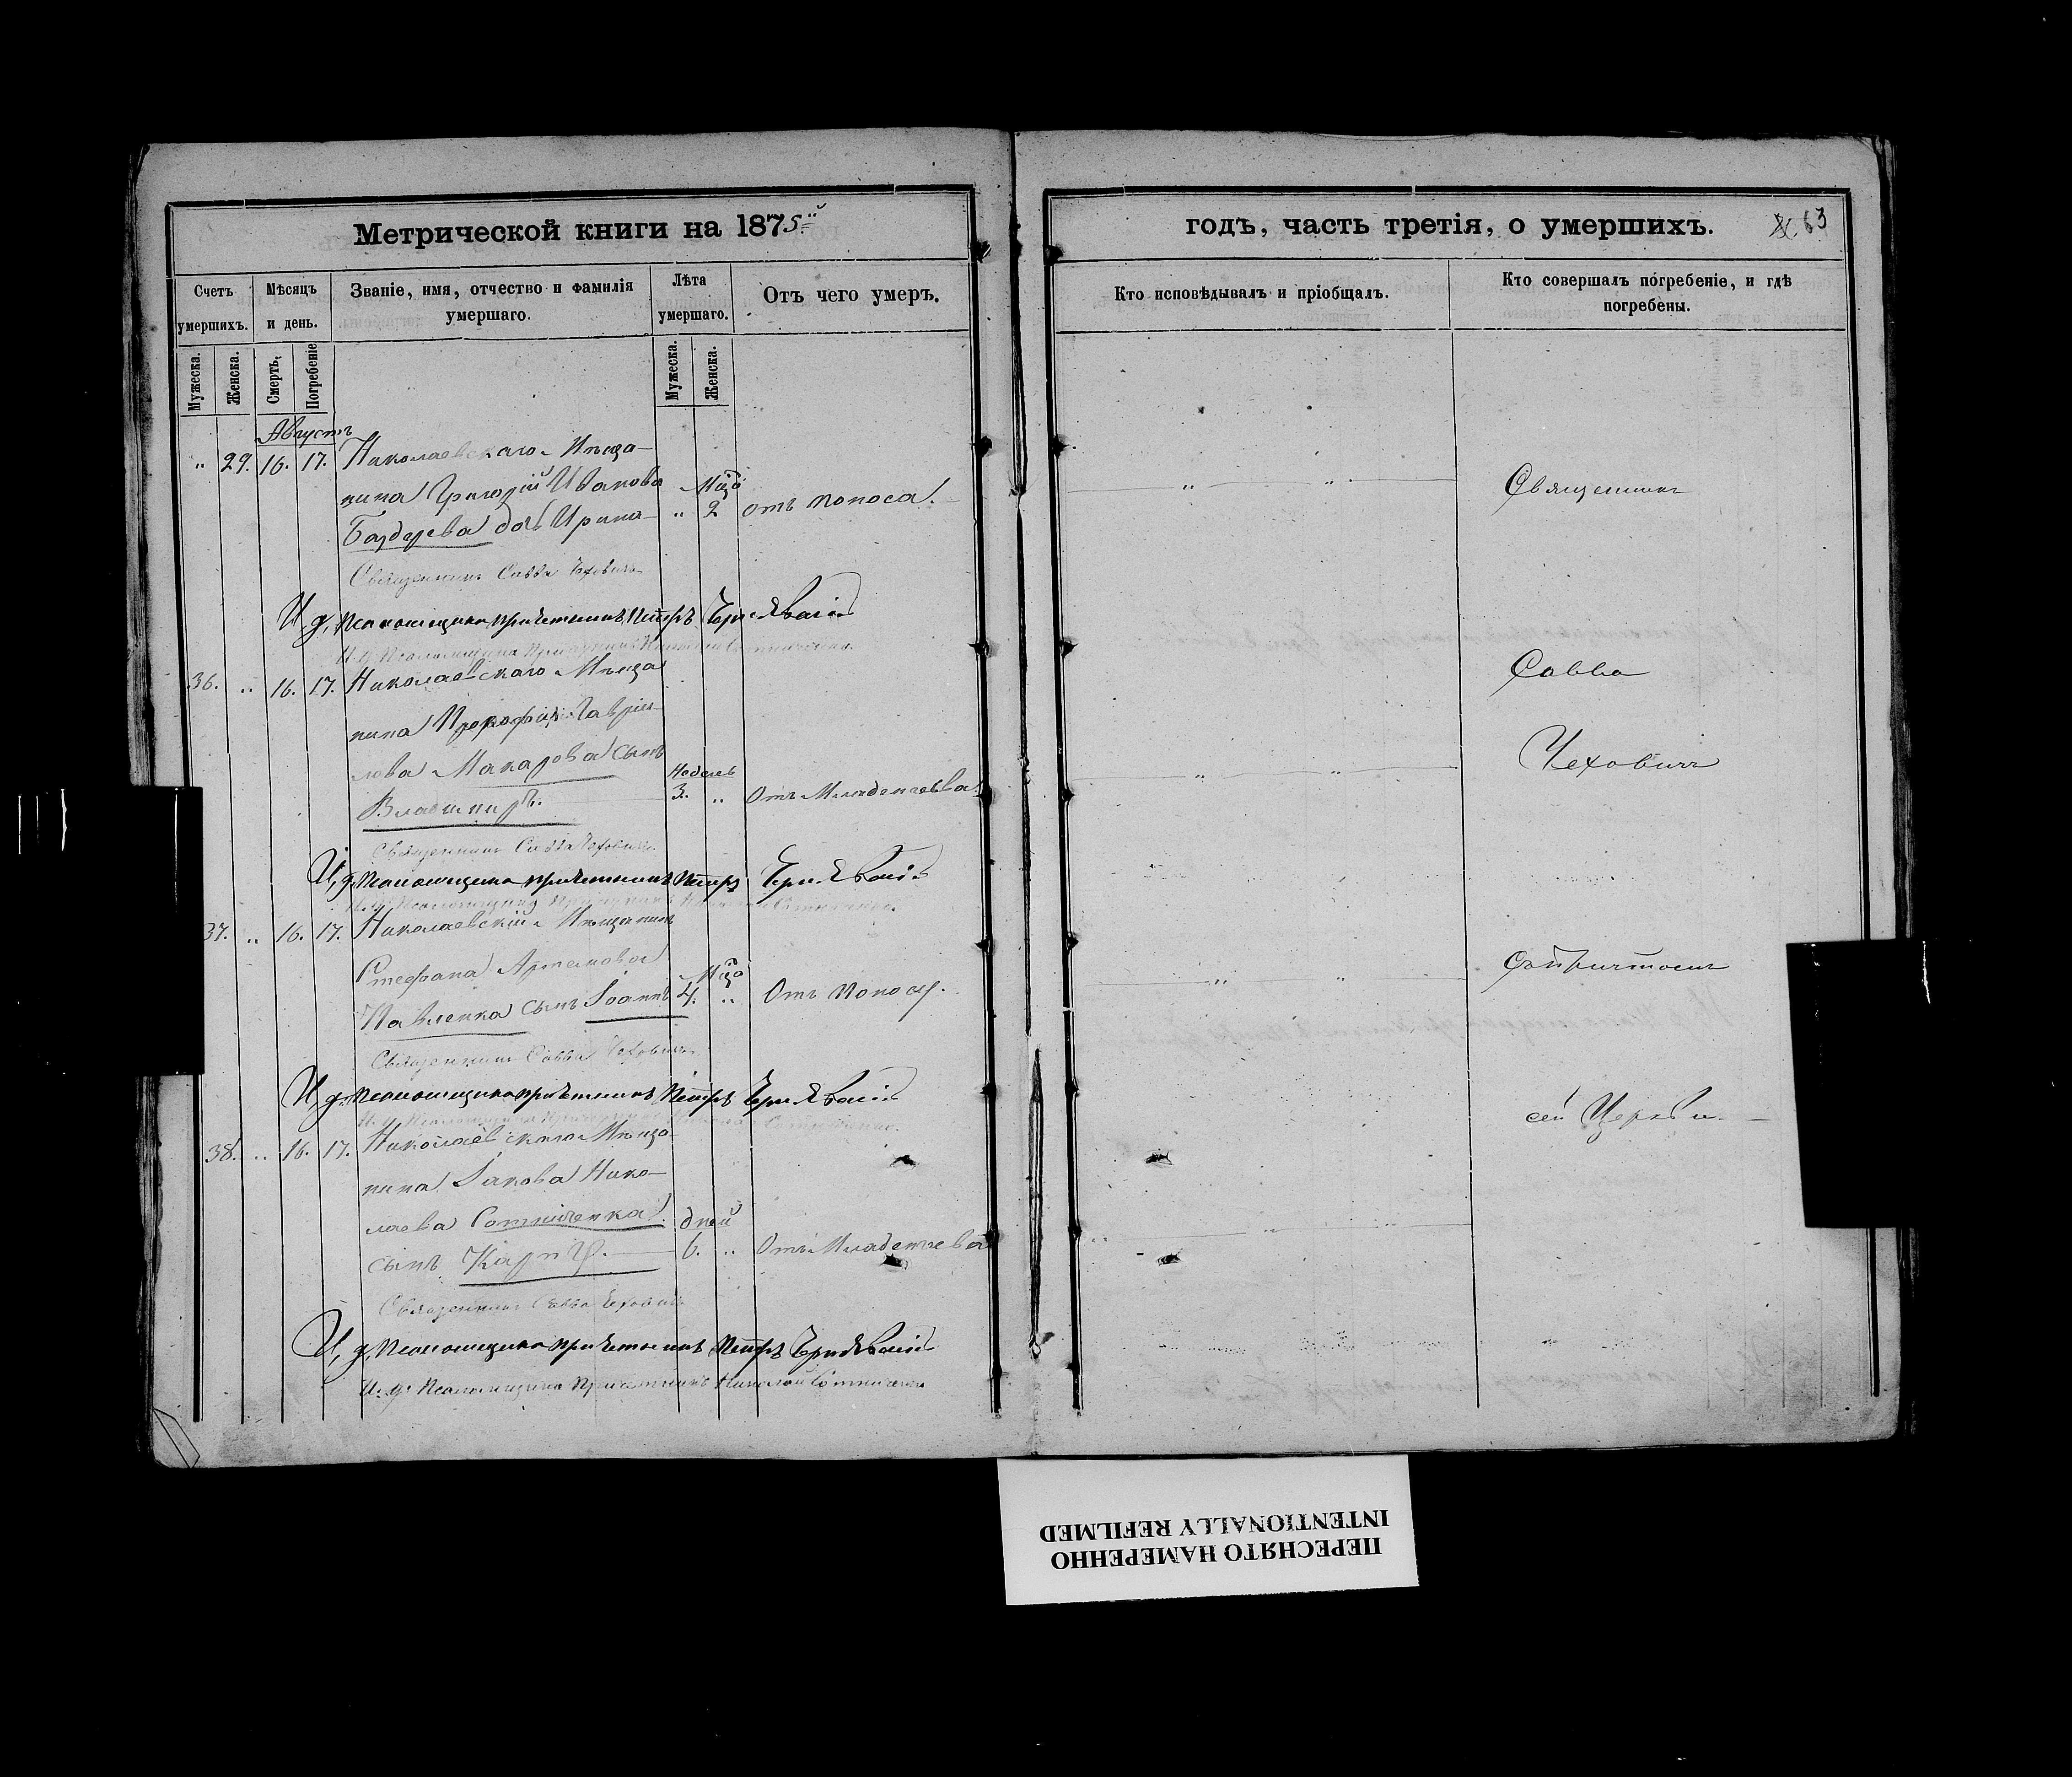 Метрической книги на 1875й
Счетъ умершихъ.
Мѣсяцъ и день.
Званіе, имя, отчество и фамилія умершаго.
Лѣта умершаго.
Отъ чего умеръ.
Мужеска.
Женска.
Смерть.
Погребеніе
Мужеска.
Женска.
Августъ
" 29. 16. 17. Николаевскаго Мѣща-
нина Григорія Иванова
Мцо
дочь Ирина " 2 отъ поноса.
Священникъ Савва Чеховичъ
И, д, Псаломщика причетникъ Петръ
И. д. Псаломщика Причетникъ
36. " 16. 17. Николаевскаго Мѣща
нина Прокофія Гаврiи-
лова Макарова сынъ
Недель
Владимiръ. 3. " Отъ Младенчества
Священникъ Савва Чеховичъ
И, д, Псаломщика причетникъ Петръ
И. д. Псаломщика Причетникъ
37. " 16. 17. Николаевскій Мѣщанинъ
Стефана Артемова
Мцо
Павленка сынъ Іоаннъ 4. " Отъ Поноса.
Священникъ Савва Чеховичъ
И, д, Псаломщика причетникъ Петръ
И. д. Псаломщика Причетникъ
38. " 16. 17. Николаевскаго Мѣща
нина Іакова Нико-
лаева Сотниченка
дней
сынъ Карпъ. 6. " Отъ Младенчества
Священникъ Савва Чеховичъ
И, д, Псаломщика причетникъ Петръ
И. д. Псаломщика Причетникъ Николай Сотниченко
годъ, часть третія, о умершихъ.
63
Кто исповѣдывалъ и пріобщалъ.
Кто совершалъ погребеніе, и гдѣ погребены.
Священникъ
Савва
Чеховичъ
сей Церкви.
ПЕРЕСНЯТО НАМЕРЕННО
INTENTIONALLY REFILMED